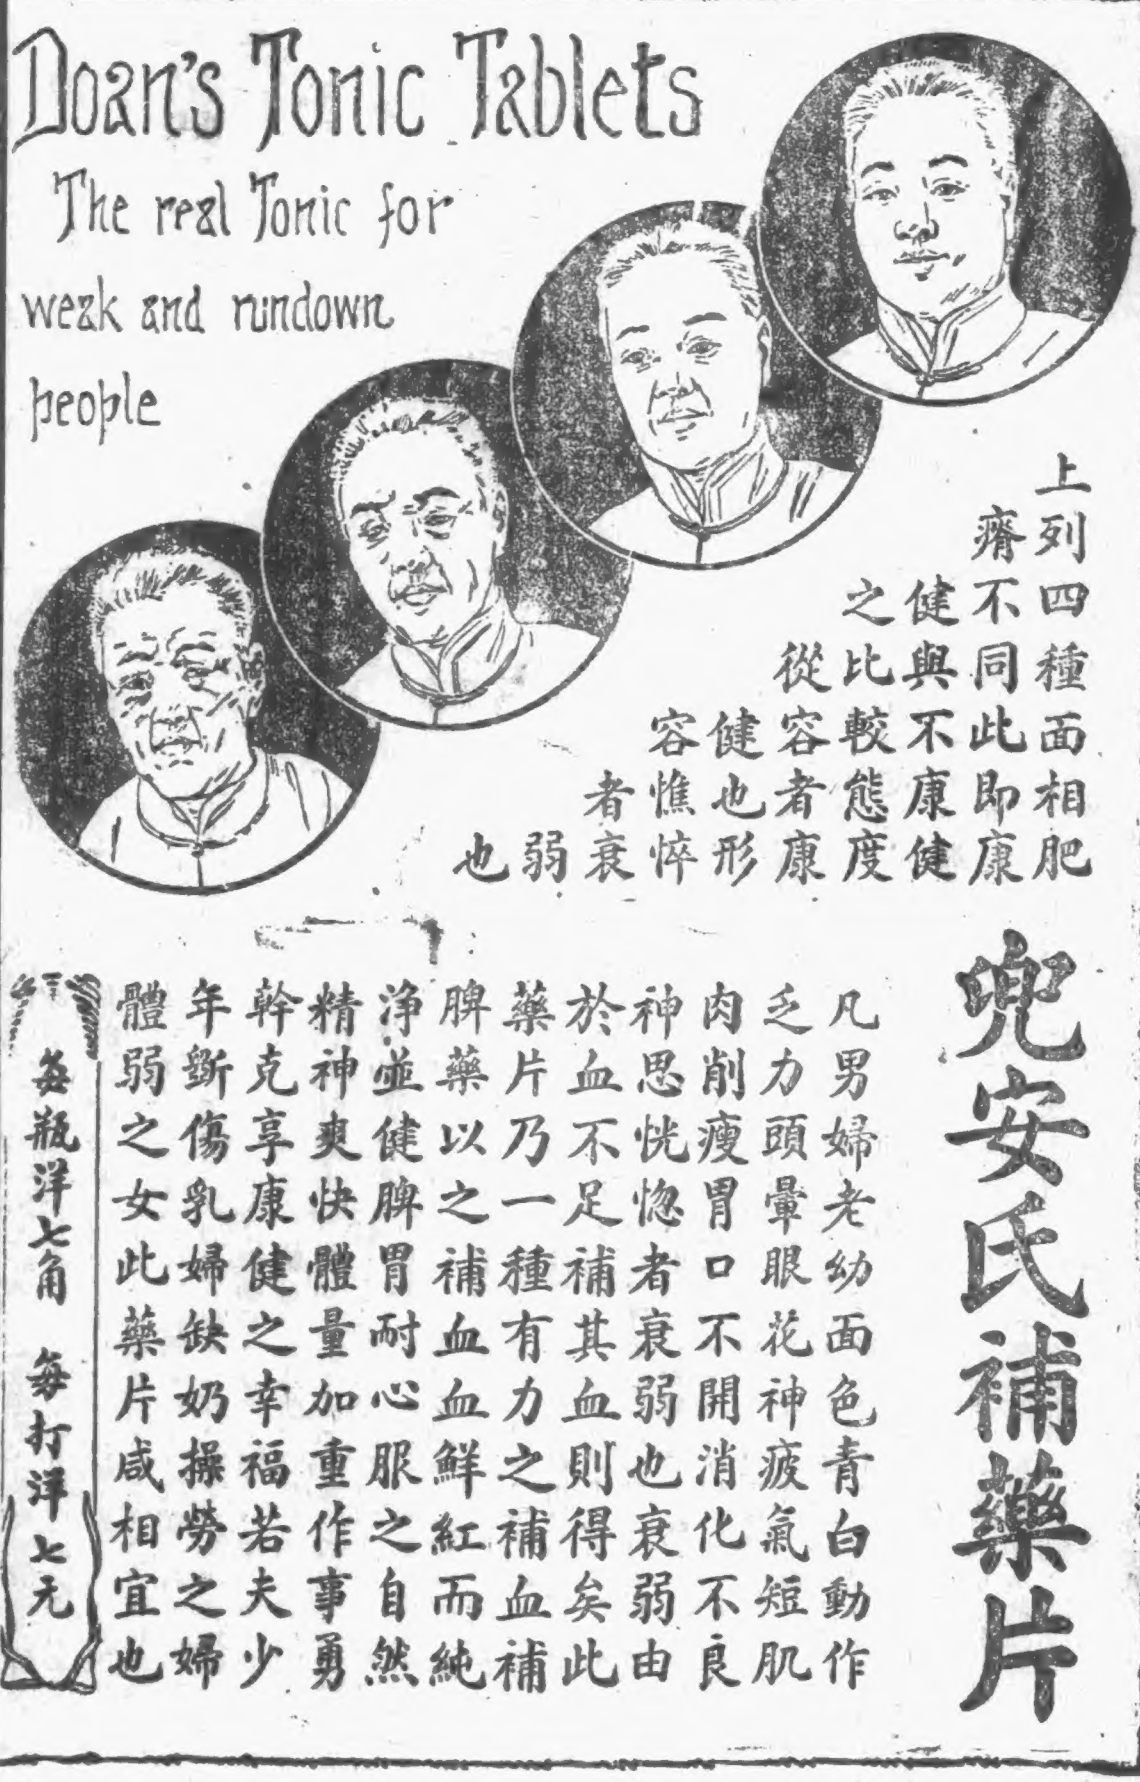 Doan's Tonic Tablets
The real Tonic for
weak and rundown
people
上列四種面相肥
瘠不同此即康
健與不康健
之比較態度
從容者康
健也形
容憔悴
者衰
弱
也
兜安氏補藥片
凡男婦老幼面色青白動作
乏力頭暈眼花神疲氣短肌
肉削瘦胃口不開消化不良
神思恍惚者衰弱也衰弱由
於血不足補其血則得矣此
藥片乃一種有力之補血補
脾藥以之補血血鮮紅而純
浄並健脾胃耐心服之自然
精神爽快體量加重作事勇
幹克享康健之幸福若夫少
年斵傷乳婦缺奶操勞之婦
體弱之女此藥片咸相宜也
每瓶洋七角 每打洋七元